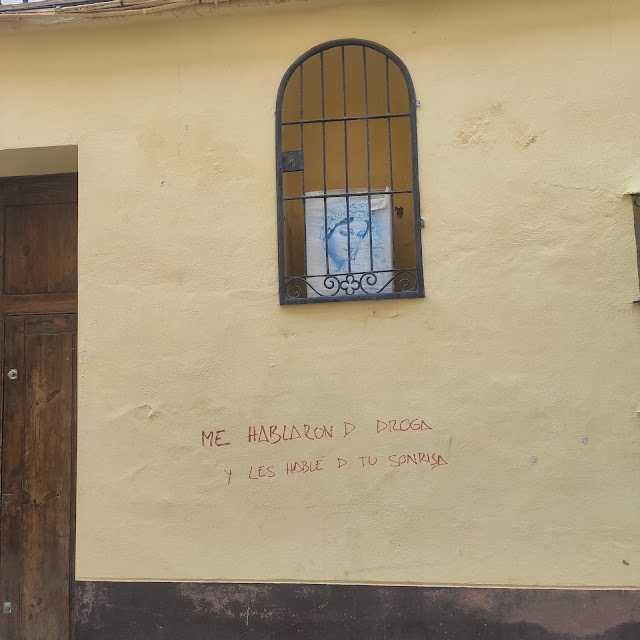 ME HABLARON D DROGA
Y LES HABLÉ D TU SONRISA